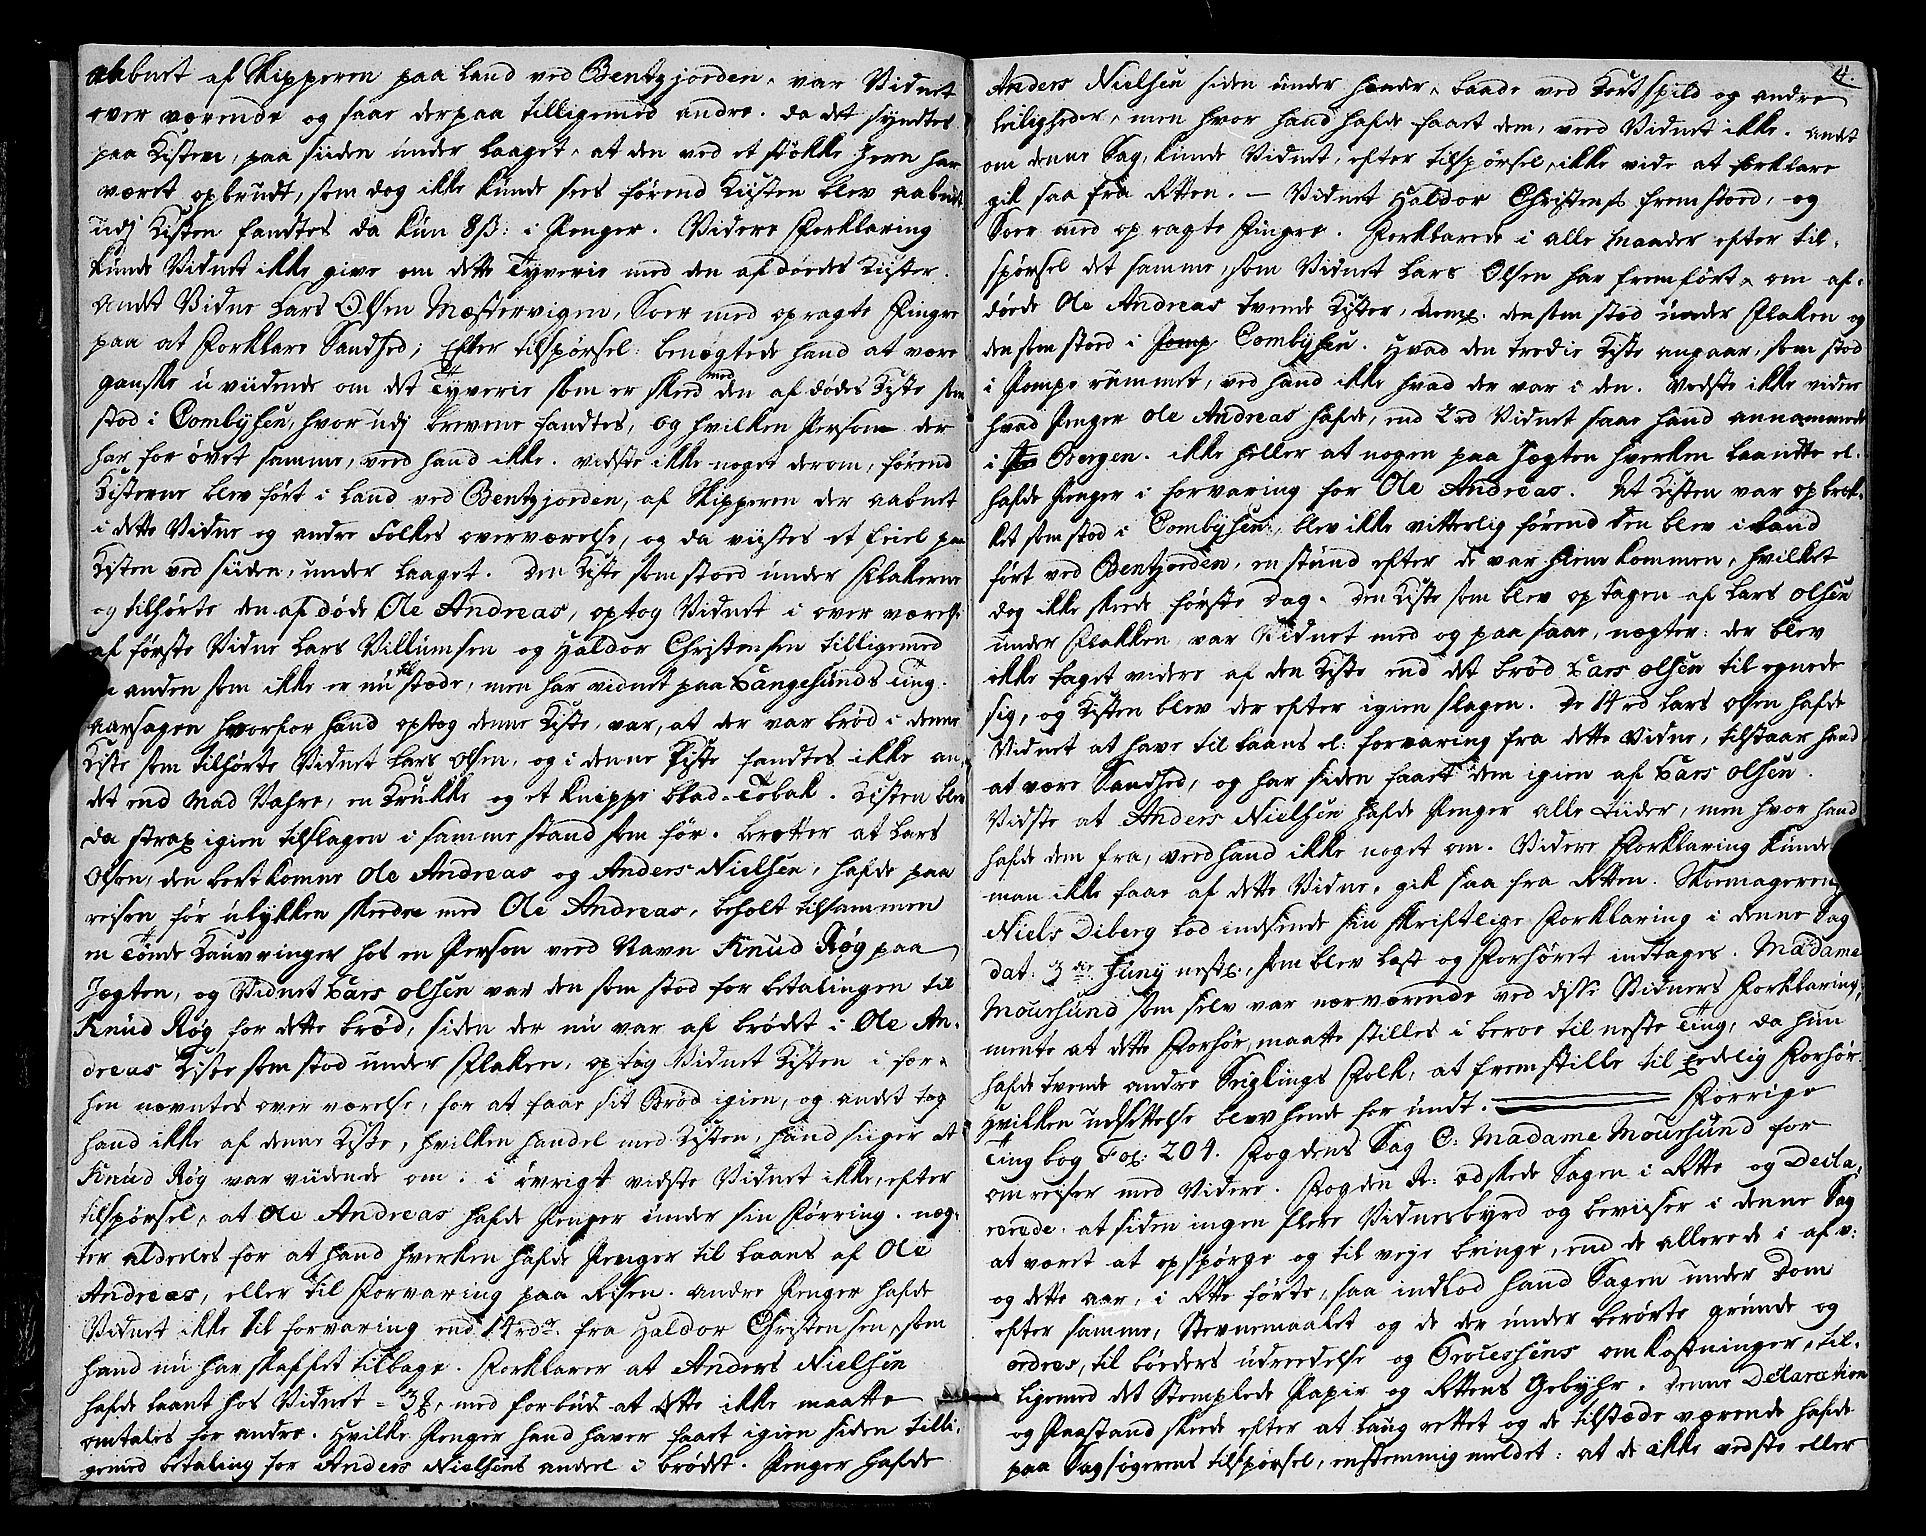 aabnet af Skipperen paa Land ved Bentzjorden, var Vidnet
over værende og saae derpaa tilligemed andre. da det syntes
paa Kisten, paa siiden under laaget, at den ved et støkke Jern har
været opbrudt, som dog ikke kunde sees førend Kiisten blev aabnet
udj Kisten fandtes da kun 8ß: i Penger. Videre Forklaring
kunde Vidnet ikke give om dette Tyverie med den afdødes Kister.
Andet Vidne Lars Olsen Mæstervigen, Soer med opragte Fingre
paa at Forklare Sandhed; Efter tilspørsel: benægtede hand at være
ganske uviidende om det Tyverie som er skeed med den afdødes Kiste som
stod i Combysen, hvorudj brevene fandtes, og hvilken Person der
har forøvet samme, veed hand ikke. vidste ikke noget derom, førend
Kisterne blev ført i Land ved Bentzjorden, af Skipperen der aabnet
i dette Vidne og andre Folkes overværelse, og da viistes et feiel paa
Kisten ved siiden, under laaget. Den Kiste som stoed under Flakerne
og tilhørte den afdøde Ole Andreas, optog Vidnet i overværelse
af første Vidne Lars Villumsen og Haldor Christensen tilligemed
en anden som ikke er nu tilstæde, men har vidnet paa Langesunds Ting.
aarsagen hvorfor hand optog denne Kiste, var, at der var brød i denne
Kiste som tilhørte Vidnet Lars Olsen, og i denne Kiste fandtes ikke an¬
det end Mad Vahre, en Krukke og et knippe blad-Tobak. Kisten blev
da strax igien tilslagen i samme stand som før. beretter at Lars
Olsen, den bortkomne Ole Andreas og Anders Nielsen, hafde paa
reisen før ulykken skeedre med Ole Andreas, beholt tilsammen
en Tønde Kauvringer hos en Person ved Navn Knud Røg paa
Jægten, og Vidnet Lars Olsen var den som stod for betalingen til
Knud Røg for dette brød, siden der nu var af brødet i Ole An¬
dreas Kiste som stod under Flaken, optog Vidnet Kisten i for¬
hen nævntes overværelse, for at faae sit Brød igien, og andet tog
hand ikke af denne Kiste, hvilken handel med Kisten, hand siiger at
Knud Røg var viidende om: i øvrigt vidste Vidnet ikke, efter
tilspørsel, at Ole Andreas hafde Penger under sin Førring. næg¬
ter aldeeles for at hand hverken hafde Penger til Laans af Ole
Andreas, eller til Forvaring paa Reisen. andre Penger hafde
Vidnet ikke til forvaring end 14 rdr. fra Haldor Christensen, som
hand nu har skaffet tilbage. Forklarer at Anders Nielsen
hafde laant hos Vidnet = 3 , med forbud at dette ikke maatte
omtales for andre. Hvilke Penger hand haver faaet igien siden tilli¬
gemed betaling for Anders Nielsens andeel i brødet. Penger hafde
4.
Anders Nielsen siden under hænder, baade ved Kortspild og andre
leiligheder, men hvor hand hafde faaet dem, veed Vidnet ikke. andet
om denne Sag, kunde Vidnet, efter tilspørsel, ikke vide at forklare
gik saa fra Retten. — Vidnet Haldor Christens: fremstoed, og
Soer med opragte Fingre. Forklarede i alle maader efter til¬
spørsel det samme, som Vidnet Lars Olsen har fremført om af¬
døede Ole Andreas tvende Kister, nemp. den som stod under Flaken og
den som stoed i Combysen. Hvad den tredie Kiste angaar, som stod
i Pompe rummet, ved hand ikke hvad der var i den. Vedste ikke videre
hvad Penger Ole Andreas hafde, end 2 rd Vidnet saae hand annammede
i Bergen. ikke heller at nogen paa Jægten hverken laante el.
hafde Penger i forvaring for Ole Andreas. At Kisten var opbræk¬
ket som stod i Combysen, blev ikke vitterlig førend den blev i Land
ført ved Bentzjorden, en stund efter de var hiem kommen, hvilket
dog ikke skede første Dag. Den Kiste som blev optagen af Lars Olsen
under Flakken, var Vidnet med og paa saae, nægter: der blev
ikke taget videre af den Kiste end det brød Lars Olsen tilegnede
sig, og Kisten blev derefter igien slagen. De 14 rd Lars Olsen hafde
Vidnet at have til Laans el: forvaring fra dette Vidne, tilstaar hand
at være Sandhed, og har siden faaet dem igien af Lars Olsen.
Vidste at Anders Nielsen hafde Penger alle tiider, men hvor hand
hafde dem fra, veed hand ikke noget om. Videre Forklaring kunde
man ikke faae af dette Vidne, gik saa fra Retten. Skoemageren
Niels Diberg lod indsende sin skriftlige Forklaring i denne Sag
dat: 3die Juny nestl:, som blev læst og Forhøret indtages. Madame
Moursund som selv var nærværende ved disse Vidners Forklaring,
mente at dette Forhør, maatte stilles i beroe til næste Ting, da hun
hafde tvende andre Seiglings Folk, at fremstille til Eedelig Forhør.
Hvilken udsettelse blev hende forundt. Forrige
Ting bog Fol: 204. Fogdens Sag C: Madame Moursund for
omreiser med Videre. Fogden St: ædskede Sagen i Rette og Decla¬
rerede: at siden ingen flere Vidnesbyrd og beviiser i denne Sag
at været at opspørge og til veje bringe, end de allerede i af v:
og dette aar, i Rette førte, saa indlod hand Sagen under Dom
efter samme, Stevnemaalet og de derunder berørte grunde og
ordres, til bøeders udreedelse og Processens omkostninger, til¬
ligemed det Stemplede Papir og Rettens Gebyhr. Denne Declaration
og Paastand skede efter at Laugrettet og de tilstæde værende hafde
paa Sagsøgerens tilspørsel, enstemmig meldet: at de ikke vedste eller